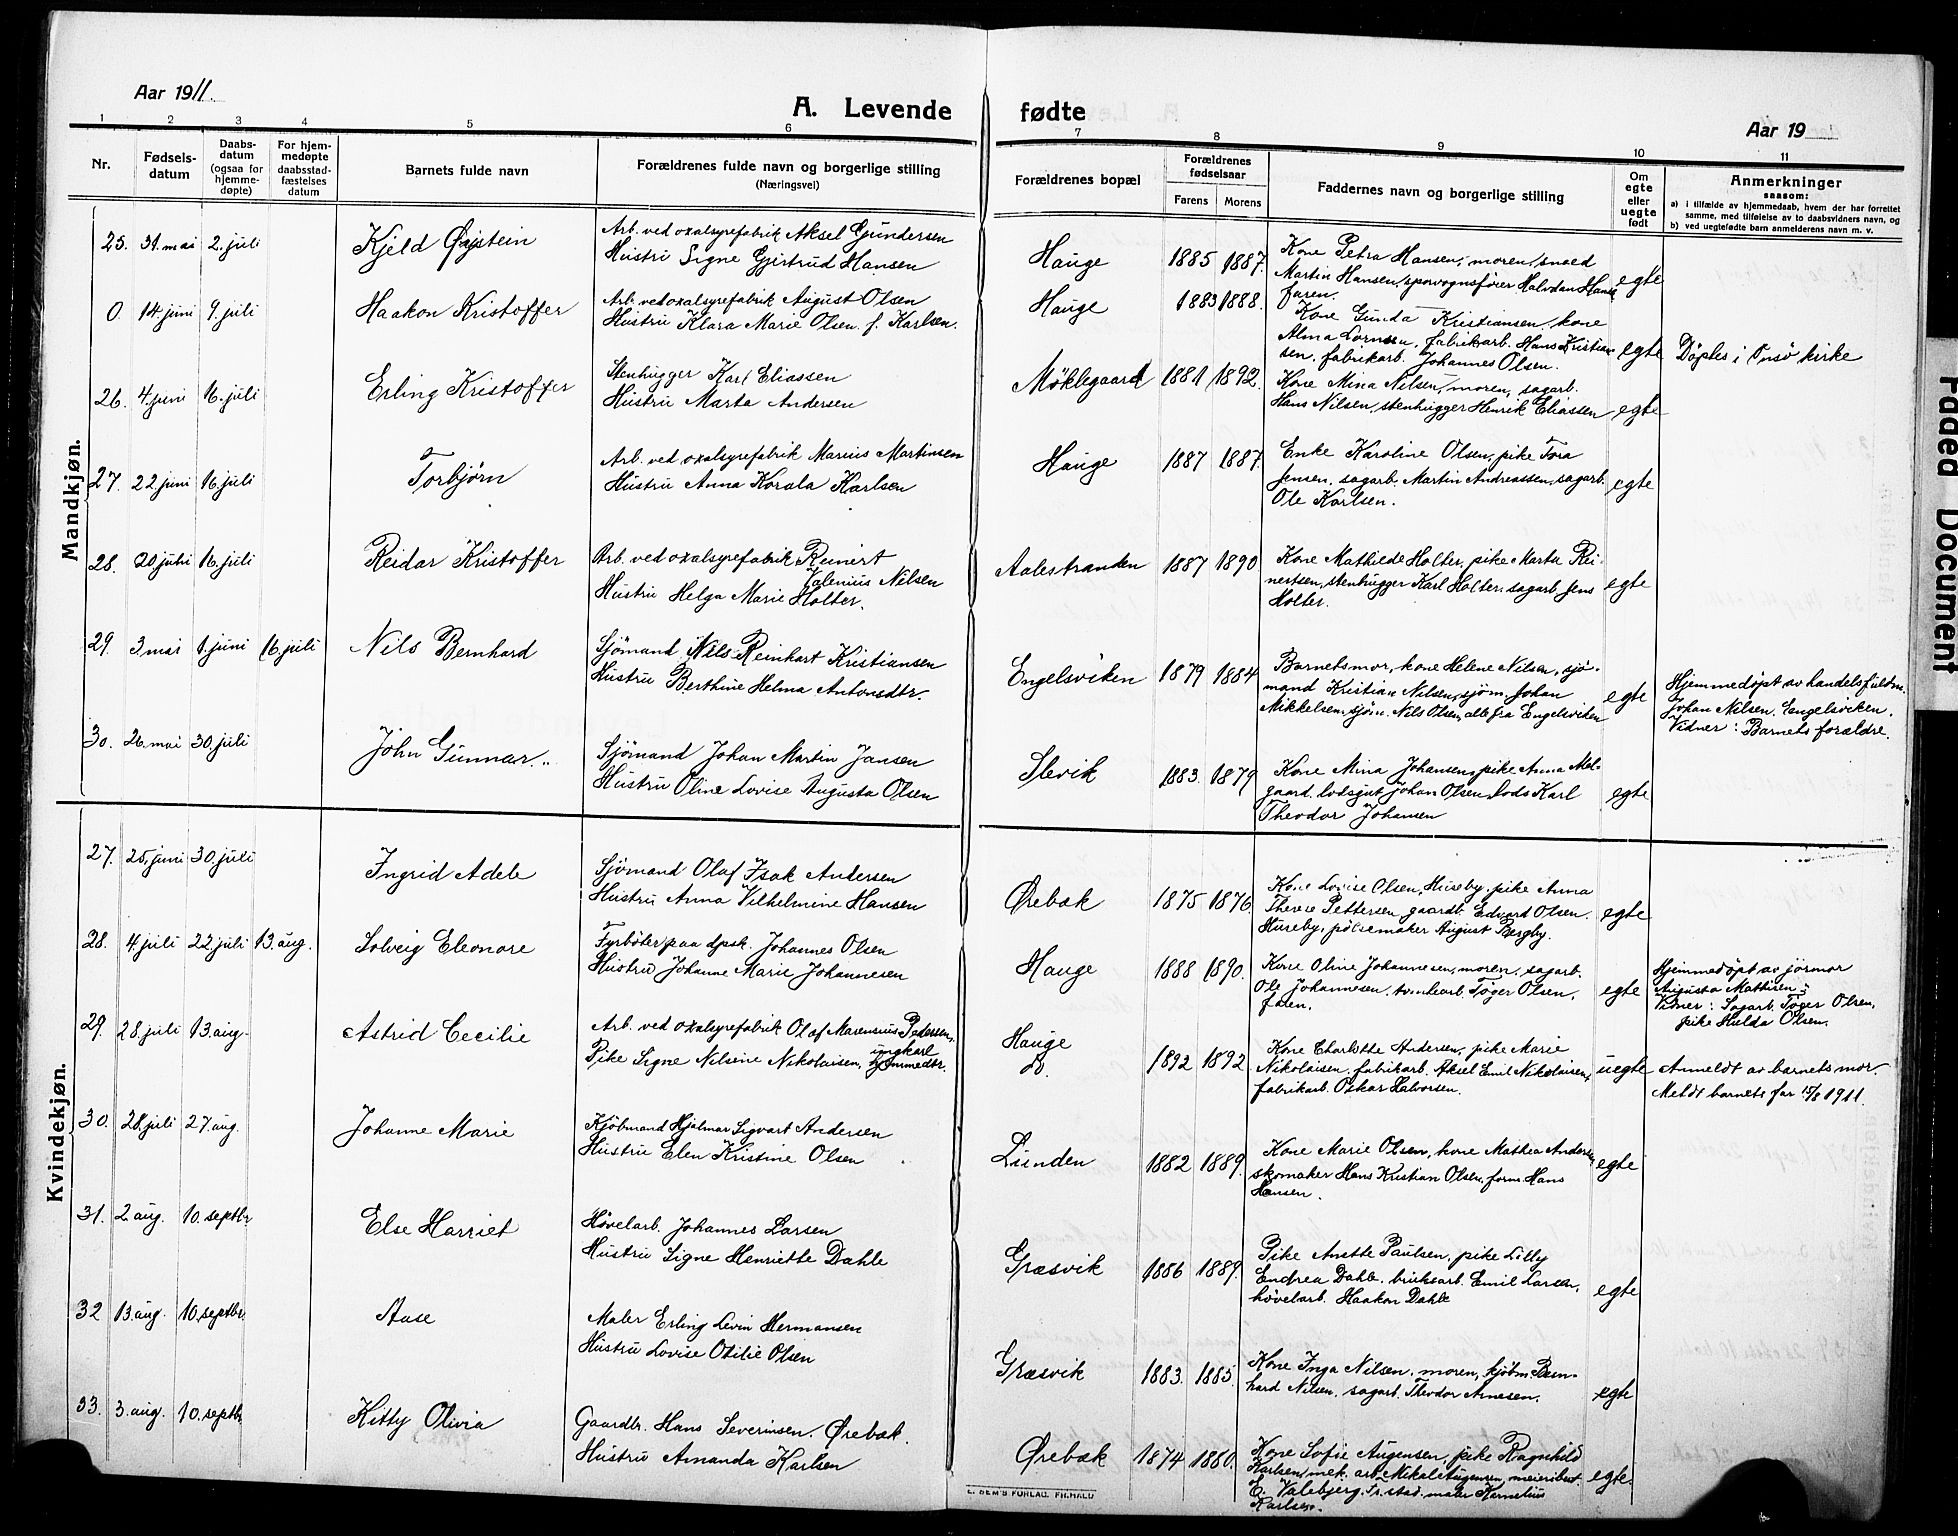 Aar 1911.
A. Levende fødte
Aar 19
1 2 3 4 5 6 7 8 9 10 11
Nr.
Fødsels-
datum
Daabs-
datum
(ogsaa for
hjemme-
døpte)
For hjem-
medøpte
daabsstad-
fæstelses
datum
Barnets fulde navn
Forældrenes fulde navn og borgerlige stilling
(Næringsvei)
Forældrenes bopæl
Forældrenes
fødselsaar
Farens Morens
Faddernes navn og borgerlige stilling
Om
egte
eller
uegte
født
Anmerkninger
saasom:
a) i tilfælde av hjemmedaab, hvem der har forrettet
samme, med tilføielse av to daabsvidners navn, og
b) ved uegtefødte barn anmelderens navn m. v.
Mandkjøn.
25. 31. mai 2. juli
Kjeld Øistein
Arb. ved oxalsyrefabrik Aksel Gundersen
Hustru Signe Gjertrud Hansen
Hauge 1885 1887.
Kone Petra Hansen, moren, smed
Martin Hansen, sporvognsfører Halvdan Hans
faren.
egte
0. 14. juni 9. juli
Haakon Kristoffer
Arb. ved oxalsyrefabrik August Olsen
Hustru Klara Marie Olsen f. Karlsen.
Hauge 1883 1888.
Kone Gunda Kristiansen, kone
Alma Lornsen, fabrikarb. Hans Kristian
sen, fabrikarb. Johannes Olsen.
egte
Døptes i Onsø kirke
26. 4. juni 16. juli
Erling Kristoffer
Stenhugger Karl Eliassen
Hustru Marta Andersen
Møklegaard 1881 1892.
Kone Mina Nilsen, moren, sagarb.
Hans Nilsen, stenhugger Henrik Eliassen
egte
27. 22. juni 16. juli
Torbjørn
Arb. ved oxalsyrefabrik Marius Martinsen
Hustru Anna Korala Karlsen
Hauge 1887 1887.
Enke Karoline Olsen, pike Tora
Jensen, sagarb. Martin Andreassen, sagarb.
Ole Karlsen.
egte
28. 20. juni 16. juli
Reidar Kristoffer
Arb. ved oxalsyrefabrik Reinert
Valenius Nilsen
Hustru Helga Marie Holter.
Aalestranden 1887 1890
Kone Mathilde Holter, pike Marta Rei-
nertsen, stenhugger Karl Holter, sagarb. Jens
Holter.
egte
29. 3. mai 1. juni 16. juli
Nils Bernhard
Sjømand Nils Reinhart Kristiansen
Hustru Berthine Helma Antonsdtr.
Engelsviken 1879 1884
Barnets mor, kone Helene Nilsen, sjø-
mand Kristian Nilsen, sjøm. Johan
Mikkelsen, sjøm. Nils Olsen, alle fra Engelsviken
egte
Hjemmedøpt av handelsfuldm.
Johan Nilsen, Engelsviken.
Vidner: Barnets forældre.
30. 26. mai 30. juli
John Gunnar
Sjømand Johan Martin Jansen
Hustru Oline Lovise Augusta Olsen
Slevik 1883. 1879
Kone Mina Johansen, pike Anna Mel-
gaard, lodsgut Johan Olsen, lods Karl
Theodor Johansen
egte
Kvindekjøn.
27. 25. juni 30. juli
Ingrid Adele
Sjømand Olaf Isak Andersen
Hustru Anna Vilhelmine Hansen
Ørebæk 1875 1876.
Kone Lovise Olsen, Huseby, pike Anna
Therese Pettersen, gaardb. Edvard Olsen,
Huseby, pølsemaker August Bergby.
egte
28. 4. juli 22. juli 13. aug.
Solveig Eleonore
Fyrbøter paa dpsk. Johannes Olsen
Hustru Johanne Marie Johannesen
Hauge 1888 1890.
Kone Oline Johannesen, moren, sagarb.
Ole Johannesen, Tøger Olsen,
faren.
egte
Hjemmedøpt av jormor
Augusta Mathisen;
Vidner: Sagarb. Tøger Olsen,
pike Hulda Olsen.
29. 28. juli 13. aug.
Astrid Cecilie
Arb. ved oxalsyrefabrik Olaf Marensius Pedersen,
ungkarl
Pike Signe Nilsine Nikolaisen, hjemmedtr.
Hauge
do. 1892 1892
Kone Charlotte Andersen, pike Marie
Nikolaisen, fabrikarb. Aksel Emil Nikolaisen,
fabrikarb. Oskar Halvorsen.
uegte
Anmeldt av barnets mor
Meldt barnets far 15/8 1911.
30. 28. juli 27. aug.
Johanne Marie
Kjøbmand Hjalmar Sigvart Andersen
Hustru Elen Kristine Olsen
Lunden 1882 1889.
Kone Marie Olsen, kone Mathea Andersen,
skomaker Hans Kristian Olsen, form. Hans
Hansen.
egte
31. 2. aug. 10. septbr
Else Harriet
Høvelarb. Johannes Larsen
Hustru Signe Henriette Dahle
Græsvik 1886 1889.
Pike Anette Paulsen, pike Lilly
Endrea Dahle, bruksarb. Emil Larsen,
høvelarb. Haakon Dahle
egte
32 13. aug. 10. septbr.
Aase
Maler Erling Levin Hermansen
Hustru Lovise Otilie Olsen
Græsvik 1883. 1885.
Kone Inga Nilsen, moren, kjøbm. Bern-
hard Nilsen, sagarb. Theodor Arnesen.
egte
33. 3. aug. 10. septbr
Kitty Olivia
Gaardbr. Hans Severinsen, Ørebæk.
Hustru Amanda Karlsen
Ørebæk 1874 1880.
Kone Sofie Augensen, pike Ragnhild
Karlsen, mek. arb. Mikal Augensen, meieribest.
E. Valebjerg, Fr.stad, maler Kornelius
Karlsen.
egte
E. SEM'S FORLAG, FR.HALD
Paded Document